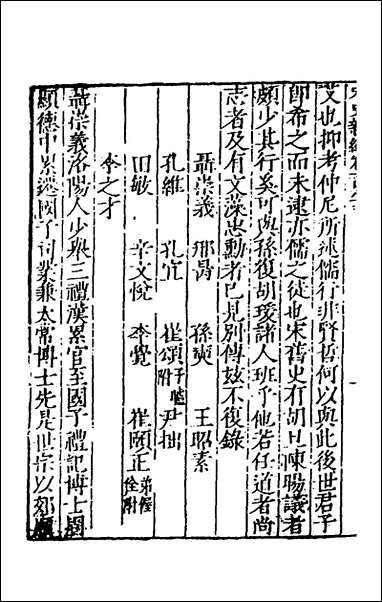 艾也抑考仲尼所述儒行非賢哲何以與此後世君子
即希之而未逮亦儒之徒也宋舊史有胡旦陳暘議者
頗少其行奚可與孫復胡瑗諸人班乎他若任道者尚
志者及有文藻忠勳者已見別傳玆不復錄
聶崇義 邢昺 孫奭 王昭素
孔維 孔宜 崔頌 子曉附 尹拙
田敏 辛文悅 李覺 崔頤正 弟偓佺附
李之才
聶崇義洛陽人少舉三禮漢累官至國子禮記博士周
顯德中累遷國子司業兼太常博士先是世宗以郊廟